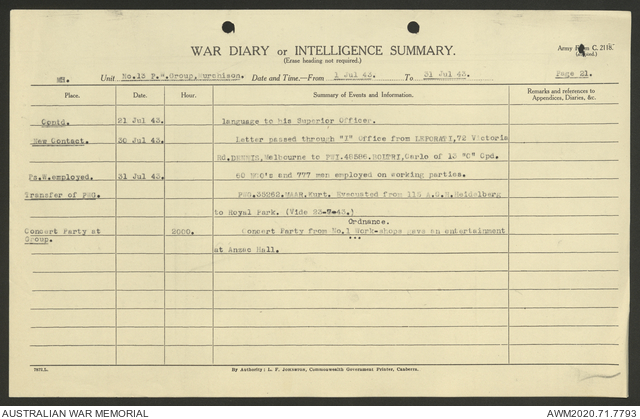 WAR DIARY or INTELLIGENCE SUMMARY.
(Erase heading not required.)
Army Form C. 2118.
Unit No.13 P.W.Group, Murchison. Date and Time.—From 1 Jul 43. To 31 Jul 43. Page 21.
Place. Date. Hour. Summary of Events and Information. Remarks and references to
Appendices, Diaries, &c.
Contd. 21 Jul 43. language to his Superior Officer.
New Contact. 30 Jul 43. Letter passed through "I" Office from LEPORATI,72 Victoria
Rd. Melbourne to PWI.48586. Carlo of 13 "C" Cpd.
Ps.W.employed. 31 Jul 43. 60 NCO's and 777 men employed on working parties.
Transfer of PWG. PWG.35262.MAAR,Kurt. Evacuated from 115 A.G.H.Heidelberg
to Royal Park. (Vide 23-7-43.)
Ordnance.
Concert Party at 2000. Concert Party from No.1 Work-shops gave an entertainment
Group. at Anzac Hall.
By Authority: L. F. Johnston, Commonwealth Government Printer, Canberra.
AUSTRALIAN WAR MEMORIAL AWM2020.71.7793